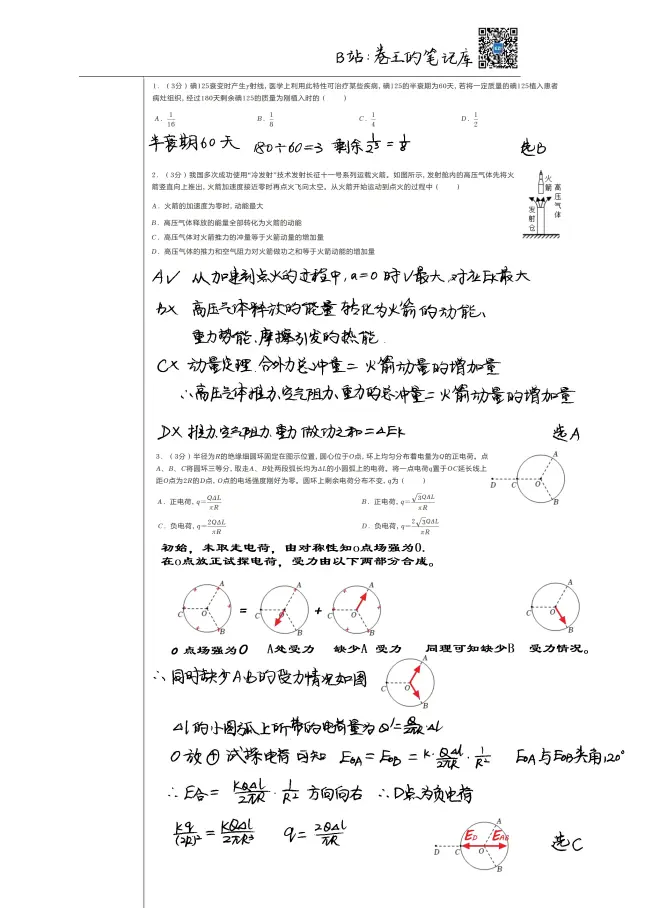 B站：卷王的笔记库
1.（3分）碘125衰变时产生γ射线，医学上利用此特性可治疗某些疾病，碘125的半衰期为60天，若将一定质量的碘125植入患者
病灶组织，经过180天剩余碘125的质量为刚植入时的（ ）
A. 1/16 B. 1/8 C. 1/4 D. 1/2
半衰期60天 180÷60=3 剩余1/2³=1/8 选B
2.（3分）我国多次成功使用“冷发射”技术发射长征十一号系列运载火箭。如图所示，发射舱内的高压气体先将火
箭竖直向上推出，火箭加速度接近零时再点火飞向太空。从火箭开始运动到点火的过程中（ ）
火箭
高压气体
发射仓
A. 火箭的加速度为零时，动能最大
B. 高压气体释放的能量全部转化为火箭的动能
C. 高压气体对火箭推力的冲量等于火箭动量的增加量
D. 高压气体的推力和空气阻力对火箭做功之和等于火箭动能的增加量
A√ 从加速到点火的过程中，a=0时V最大，对应Ek最大
B× 高压气体释放的能量转化为火箭的动能、
重力势能、摩擦引发的热能.
C× 动量定理.合外力总冲量=火箭动量的增加量
∴高压气体推力、空气阻力、重力的总冲量=火箭动量的增加量
D× 推力、空气阻力、重力做功之和=ΔEk 选A
3.（3分）半径为R的绝缘细圆环固定在图示位置，圆心位于O点，环上均匀分布着电量为Q的正电荷。点
A、B、C将圆环三等分，取走A、B处两段弧长均为ΔL的小圆弧上的电荷。将一点电荷q置于OC延长线上
距O点为2R的D点，O点的电场强度刚好为零。圆环上剩余电荷分布不变，q为（ ）
A
D C O
B
A. 正电荷，q=QΔL/πR B. 正电荷，q=√3QΔL/πR
C. 负电荷，q=2QΔL/πR D. 负电荷，q=2√3QΔL/πR
初始，未取走电荷，由对称性知O点场强为0.
在O点放正试探电荷，受力由以下两部分合成。
A A A A
C O = C O + C O C O
B B B
O点场强为0 A处受力 缺少A 受力 同理可知缺少B 受力情况。
∴同时缺少A、B的受力情况如图
A
C O
B
Δl的小圆弧上所带的电荷量为Q'=Q/2πR·Δl
O放⊕试探电荷可知 EOA=EOB=k·QΔl/2πR·1/R² EOA与EOB夹角120°
∴E合=KQΔl/2πR·1/R² 方向向右 ∴D点为负电荷
Kq/(2R)²=KQΔl/2πR³ q=2QΔl/πR 选C
A
ED EAB
D C O
B